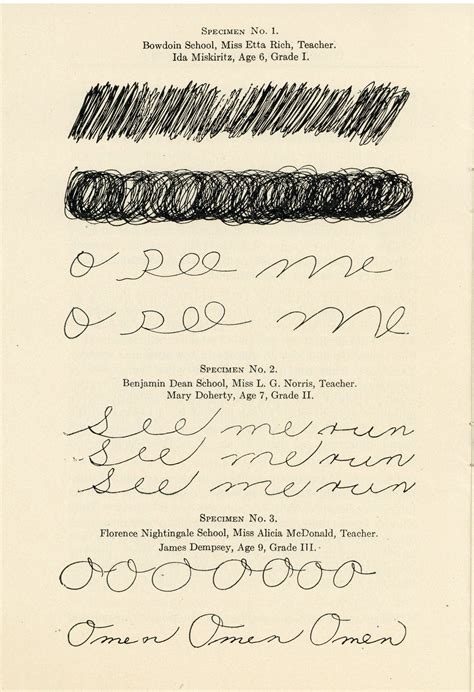 Specimen No. 1.
Bowdoin School, Miss Etta Rich, Teacher.
Ida Miskiritz, Age 6, Grade I.
O see me
O see me
Specimen No. 2.
Benjamin Dean School, Miss L. G. Norris, Teacher.
Mary Doherty, Age 7, Grade II.
See me run
See me run
See me run
Specimen No. 3.
Florence Nightingale School, Miss Alicia McDonald, Teacher.
James Dempsey, Age 9, Grade III.
OOOOOOOO
Omen Omen Omen